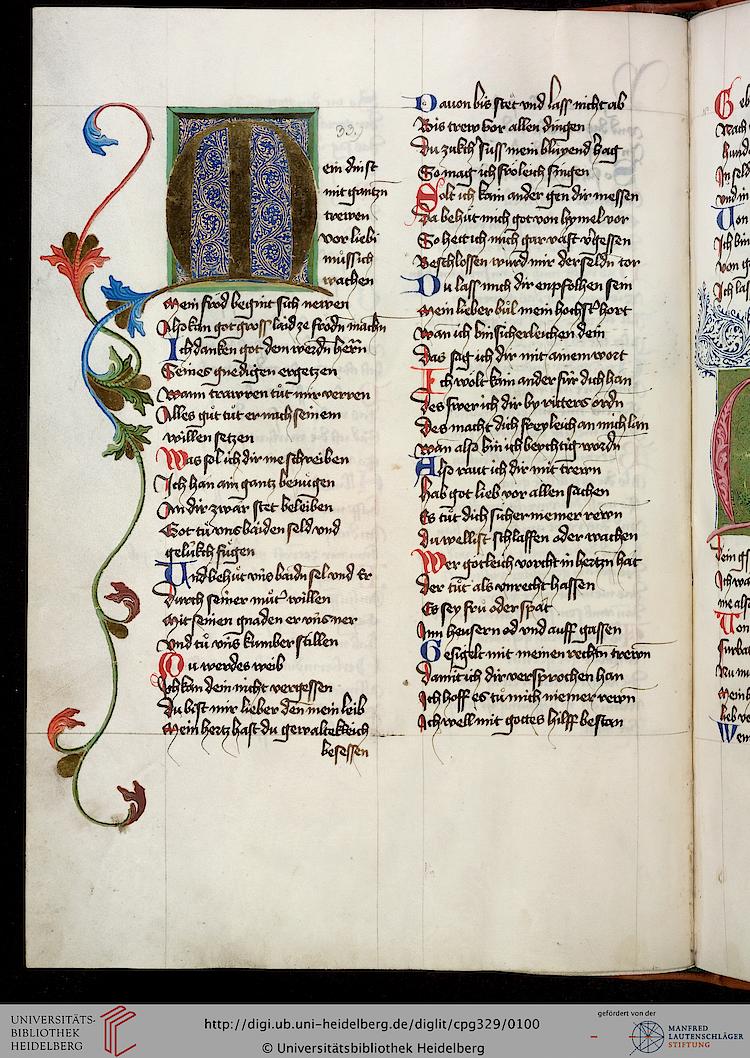 M
33
ein dinst
mit gantzn
trewen
vor liebi
müssich
wachen
Mein frod begint sich newen
Also kan got gross laid ze frodn machn
Ich danken got dem werdn hern
Seines gnedigen ergetzen
Wann trawren tüt mir verren
Alles güt tüt er nach seinem
willen setzen
Was sol ich dir me schreiben
Ich han am gantz benügen
An dir zwar stet beleiben
Got tü vns baiden seld vnd
gelükch fügen
Vnd behüt vns baidn sel vnd er
Durch seiner müt willen
Mit seinen gnaden er vns ner
Vnd tü vns kumber stillen
Ou werdes weib
Ich kan dein nicht vergessen
Du bist mir lieber den mein leib
Mein hertz hast du gewaltekleich
besessen
Dauon bis stet vnd lass nicht ab
Bis trew vor allen dingen
Du zukch süss mein blüyend hag
So mag ich fröleich singen
Solt ich kain ander gen dir messen
Da behüt mich got von hymel vor
So hett ich mich gar vast vergessen
Beschlossen wurd mir der seldn tor
Du lass mich dir enpfolhen sein
Mein lieber bül mein hochster hort
Wan ich bin sicherleichen dein
Das sag ich dir mit ainem wort
Ich wolt kain ander für dich han
Des swer ich dir by ritters ordn
Des macht dich freyleich an mich lan
Wan also bin ich beychtig wordn
Also raut ich dir mit trewn
Hab got lieb vor allen sachen
Es tüt dich sicher niemer rewn
Du wellist schlaffen oder wachen
Wer gotleich vorcht in hertzn hat
Der tüt als vnrecht hassen
Es sey frü oder spat
Inn heusern od vnd auff gassen
Gesigelt mit meinen rechtn trewn
Damit ich dir versprochen han
Ich hoff es tü mich niemer rewn
Ich well mit gottes hilff bestan
UNIVERSITÄTS-
BIBLIOTHEK
HEIDELBERG
http://digi.ub.uni-heidelberg.de/diglit/cpg329/0100
© Universitätsbibliothek Heidelberg
gefördert von der
MANFRED
LAUTENSCHLÄGER
STIFTUNG